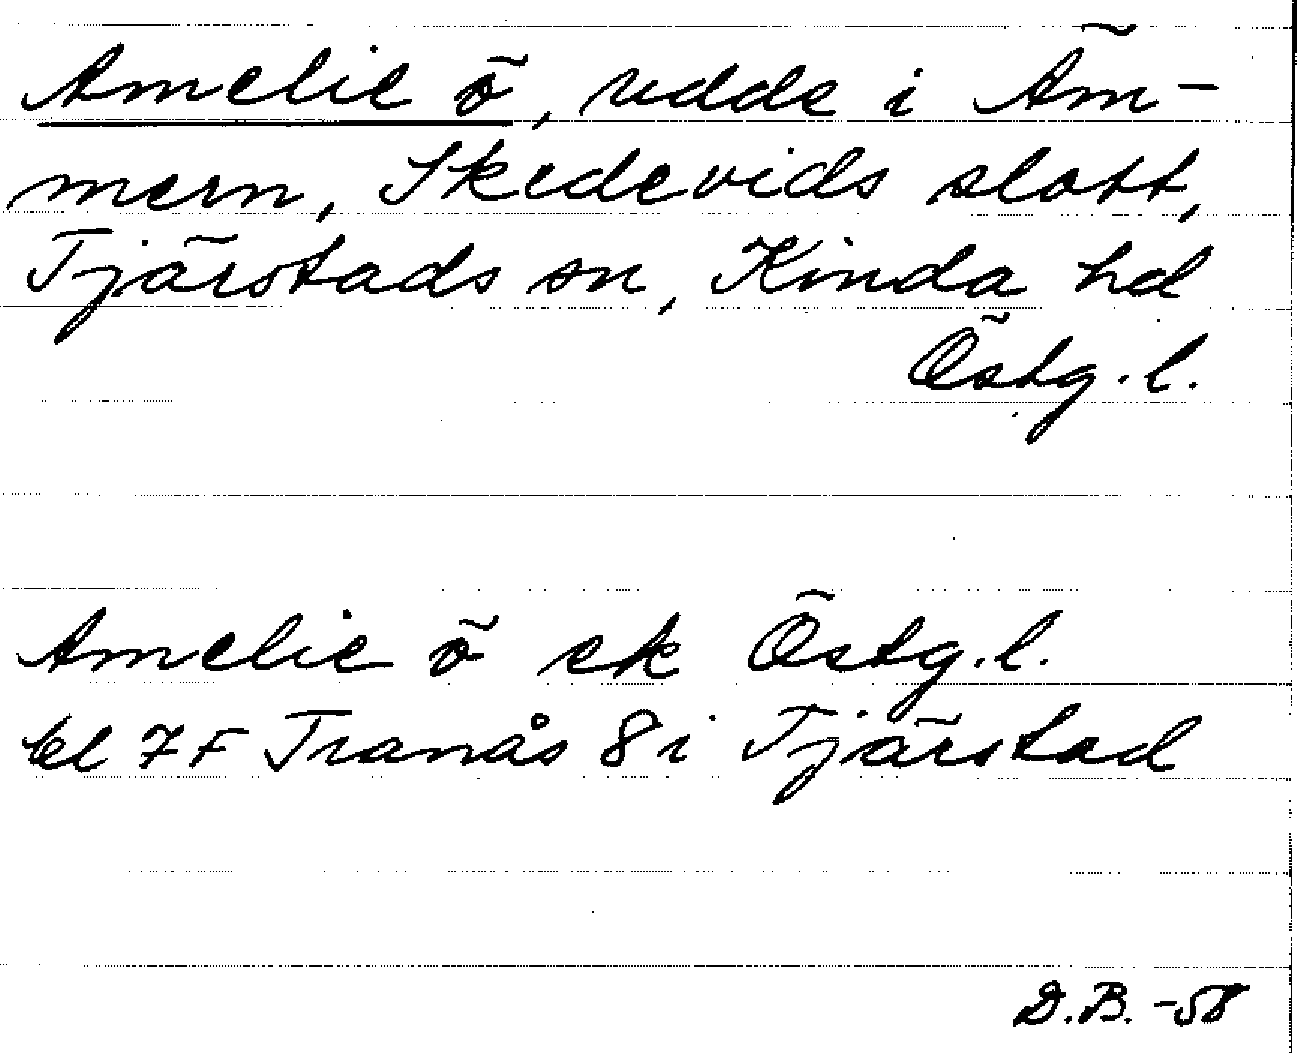 Amelie ö, udde i Äm-
mern, Skedevids slott,
Tjärstads sn, Kinda hd
Östg. l.
Amelie ö ek Östg. l.
bl 7F Tranås 8i Tjärstad
D.B. -58